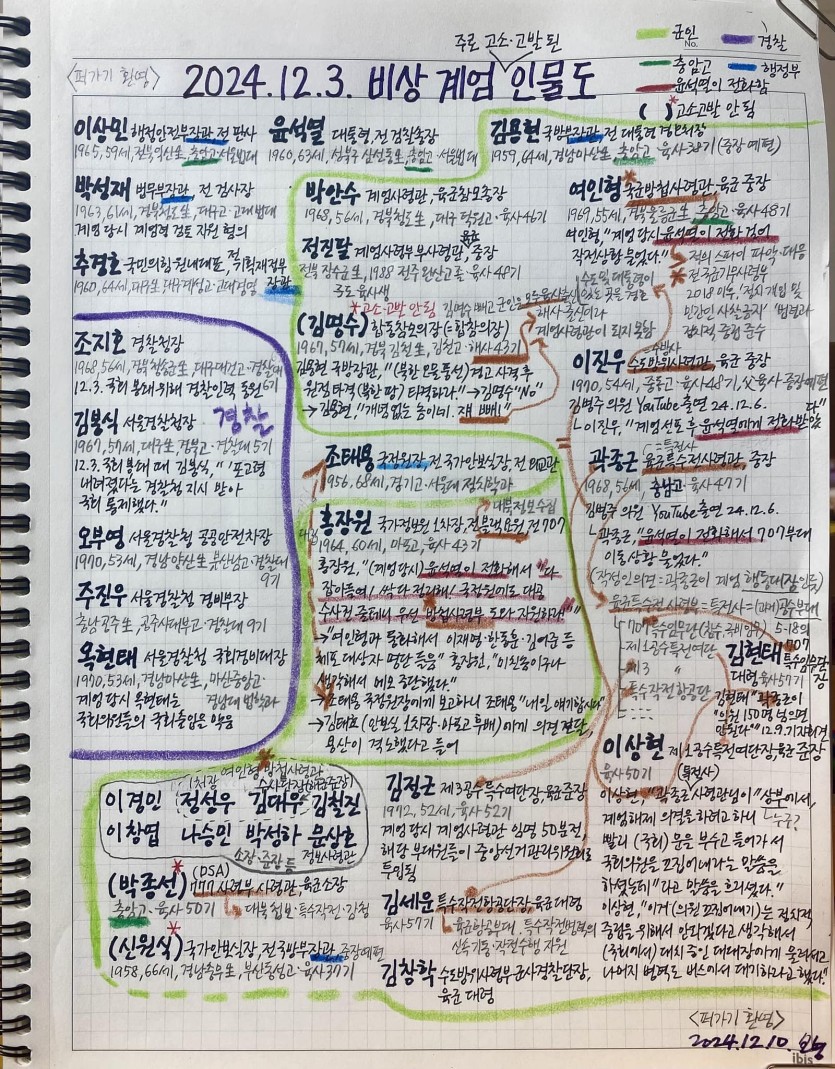 주로 고소·고발된
군인
경찰
충암고
행정부
윤석열이 전화함
( )* 고소고발 안 됨
<퍼가기 환영>
2024.12.3. 비상 계엄 인물도
이상민 행정안전부장관, 전 판사
1965, 59세, 전북익산生, 충암고·서울법대
윤석열 대통령, 전 검찰총장
1960, 63세, 충암고·서울법대
김용현 국방부장관, 전 대통령 경호처장
1959, 64세, 경남마산生, 충암고·육사38기 (중장 예편)
박성재 법무부장관, 전 검사장
1963, 61세, 경북청도生, 대구고·고대법대
계엄 당시 계엄령 검토 지원 혐의
추경호 국민의힘 원내대표, 전 기획재정부
장관
1960, 64세, 대구生, 대구계성고·고대경영
박안수 계엄사령관, 육군참모총장
1968, 56세, 경북청도生, 대구 덕원고·육사46기
정진팔 계엄사령부부사령관, 육군중장
전북 장수군生, 1988 전주 완산고 졸·육사48기
3도 육사생
*고소·고발 안됨
(김명수) 합동참모의장(=합참의장)
1967, 57세, 경북 김천生, 김천고·해사43기
김용현 국방장관, "(북한 오물풍선) 경고 사격 후
원점타격(북한 땅) 타격하라." → 김명수 "No"
→ 김용현, "개념 없는 놈이네. 쟤 빼!"
김명수 빼고 군인은 모두 육사출신
해사 출신이라
계엄사령관이 되지 못함
여인형 국군방첩사령관, 육군 중장
1969, 55세, 경북울릉군生, 충암고·육사48기
여인형, "계엄 당시 윤석열이 전화 걸어
작전상황 물었다."
적의 스파이 파악·대응
*전 국군기무사령부
2018 이후, '정치 개입 및
민간인 사찰금지' 법령과
정치적 중립 준수
이진우 수도방위사령관, 육군 중장
수방사
1970, 54세, 중동고·육사48기, 父육사 중장예편
김병주 의원 YouTube 출연 24.12.6.
ㄴ이진우, "계엄선포 후 윤석열에게 전화받았다"
곽종근 육군특수전사령관, 중장
특전사
1968, 56세, 충남고·육사47기
김병주 의원 YouTube 출연 24.12.6.
ㄴ곽종근, "윤석열이 전화해서 707부대
이동상황 물었다."
(작전인의견: 곽종근이 계엄 행동대장인듯)
육군특수전사령부=특전사=(과거)공수부대
5·18의
707특수임무단
제1공수특전여단
제3 〃
특수작전항공단
김현태 707특수임무단장
대령·육사57기
김현태 "곽종근이
'의원 150명 넘으면
안된다'" 12.9.기자회견
조지호 경찰청장
1968, 56세, 경북청송군生, 대구대건고·경찰대
6기
12.3. 국회 봉쇄 위해 경찰인력 동원
김봉식 서울경찰청장 경찰
1967, 57세, 대구生, 경북고·경찰대5기
12.3. 국회 봉쇄 때 김봉식, "'포고령
내려졌다'는 경찰청 지시 받아
국회 통제했다."
오부명 서울경찰청 공공안전차장
1970, 53세, 경남양산生, 부산남고·경찰대
9기
주진우 서울경찰청 경비부장
충남공주生, 공주사대부고·경찰대 9기
목현태 서울경찰청 국회경비대장
1970, 53세, 경남마산生, 마산중앙고·
경남대 법학과
계엄 당시 목현태는
국회의원들의 국회출입을 막음
조태용 국정원장, 전 국가안보실장, 전 외교관
1956, 68세, 경기고·서울대 정치학과
홍장원 국가정보원 1차장, 전 블랙요원, 전707
대북정보수집
1964, 60세, 마포고, 육사 43기
홍장원, "(계엄 당시) 윤석열이 전화해서 "'다
잡아들여! 싹 다 정리해! 국정원에도 대공
수사권 줄테니 우선 방첩사령부 도와 지원하라'"
→ "여인형과 통화해서 이재명·한동훈·김어준 등
체포 대상자 명단 들음" 홍장원, "미친놈이구나
생각해서 메모 중단했다."
→ 조태용 국정원장에게 보고하니 조태용 "내일 얘기합시다"
→ 김태효 (안보실 1차장·마포고 후배)에게 의견 전달,
용산이 격노했다고 들어
여인형 방첩사령관
1처장
수사단장(해군준장)
이경민 정성우 김대우 김철진
이창엽 나승민 박성하 문상호
소장·준장 등
정보사령관
*(박종선) (DSA) 777사령부 사령관, 육군소장
충암고·육사50기
대북첩보·특수작전·감청
*(신원식) 국가안보실장, 전 국방부장관, 중장예편
1958, 66세, 경남통영生, 부산동성고·육사37기
김정근 제3공수특수여단장, 육군준장
1972, 52세, 육사52기
계엄 당시 계엄사령관 임명 50분전,
해당 부대원들이 중앙선거관리위원회로
투입됨
김세운 특수작전항공단장, 육군대령
육사57기
육군항공부대, 특수작전병력의
신속기동·작전수행 지원
김창학 수도방위사령부군사경찰단장,
육군 대령
이상현 제1공수특전여단장, 육군준장
육사50기
(특전사)
이상현, "곽종근사령관님이 "상부에서,
누구?
계엄해제 의결을 하려고 하니
빨리 (국회) 문을 부수고 들어가서
국회의원을 끄집어내라는 말씀을
하셨는데" 라고 말씀을 흐리셨다."
이상현, "이거 (의원 끄집어내기)는 정치적
중립을 위해서 안되겠다고 생각해서
(국회에서) 대치 중인 대대장에게 물러서고
나머지 병력도 버스에서 대기하라고 했다."
<퍼가기 환영>
2024.12.10.
ibis